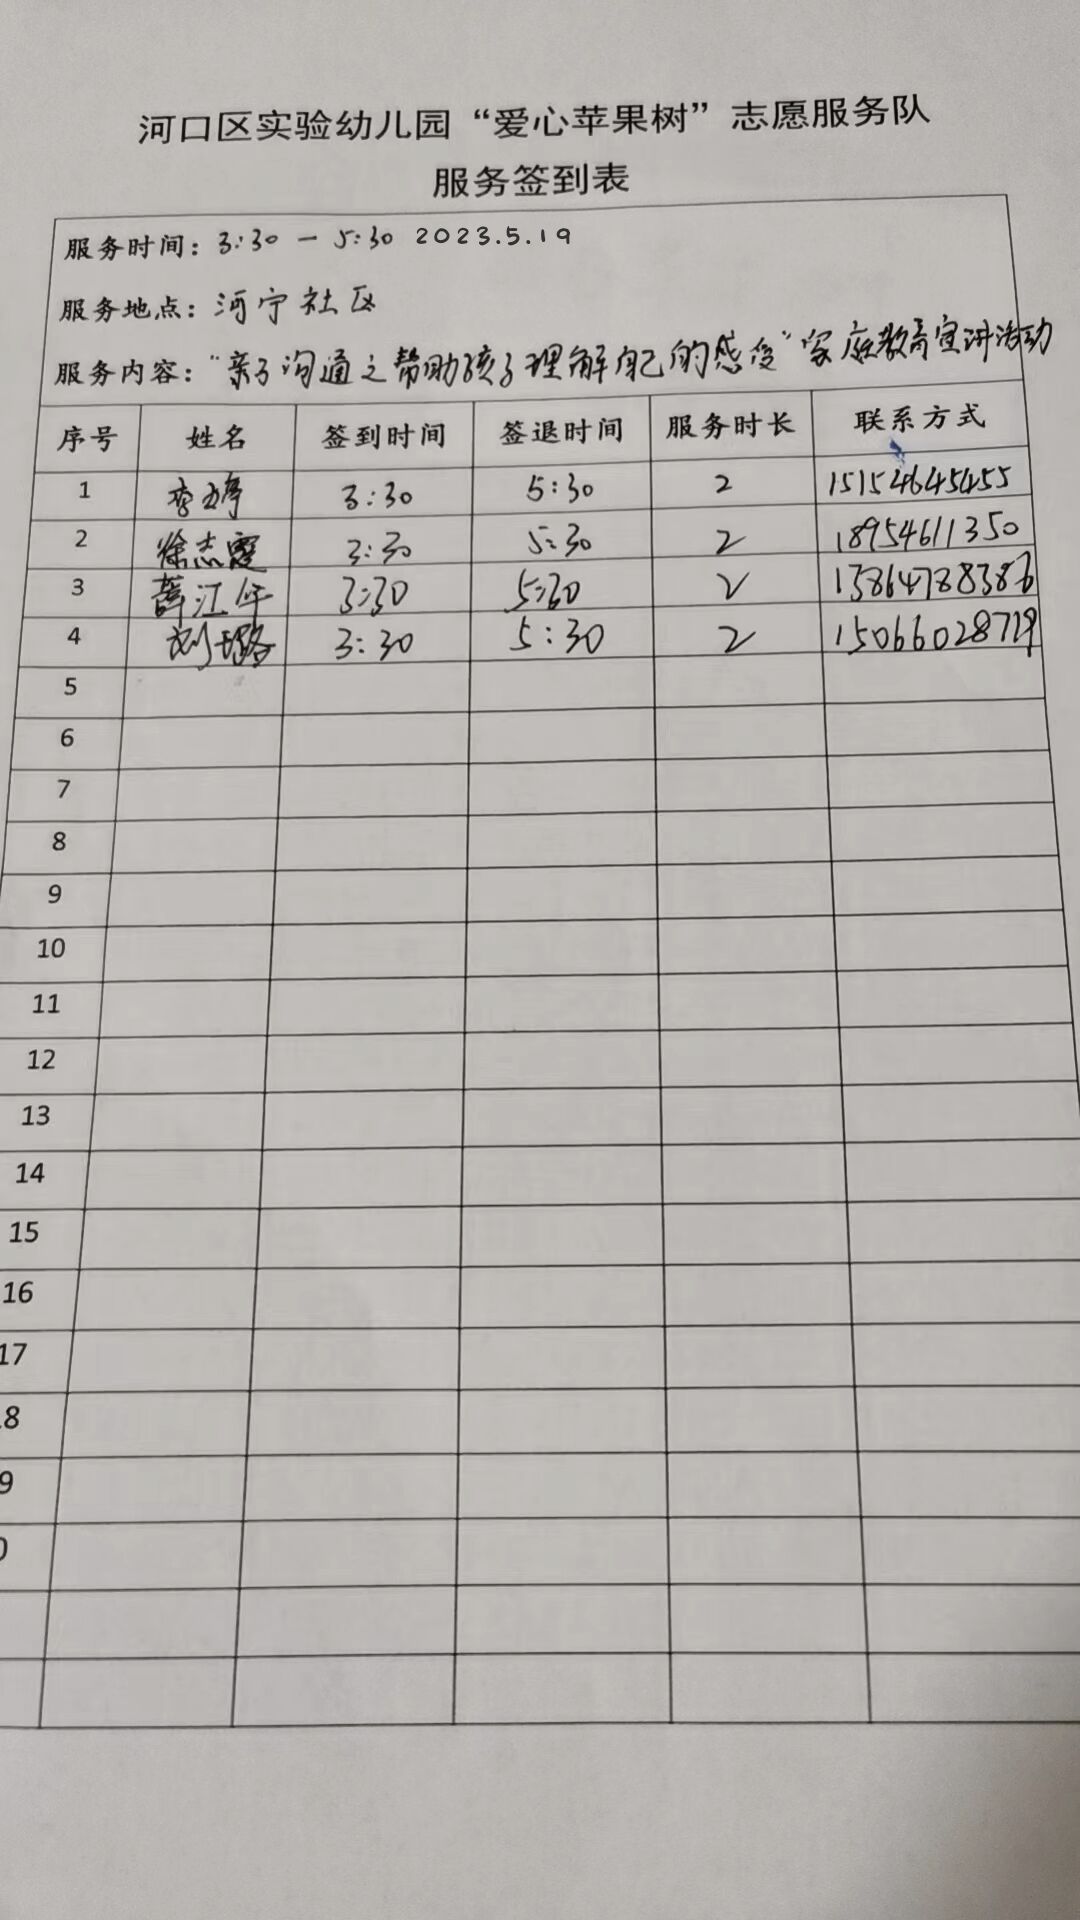 河口区实验幼儿园“爱心苹果树”志愿服务队
服务签到表
服务时间：3:30 — 5:30 2023.5.19
服务地点：河宁社区
服务内容：“亲子沟通之帮助孩子理解自己的感受”家庭教育宣讲活动
序号 姓名 签到时间 签退时间 服务时长 联系方式
1 李婷 3:30 5:30 2 15154645455
2 徐志霞 3:30 5:30 2 18954611350
3 薛江 3:30 5:30 2
4 刘璐 3:30 5:30 2 15066028719
5
6
7
8
9
10
11
12
13
14
15
16
17
8
9
0